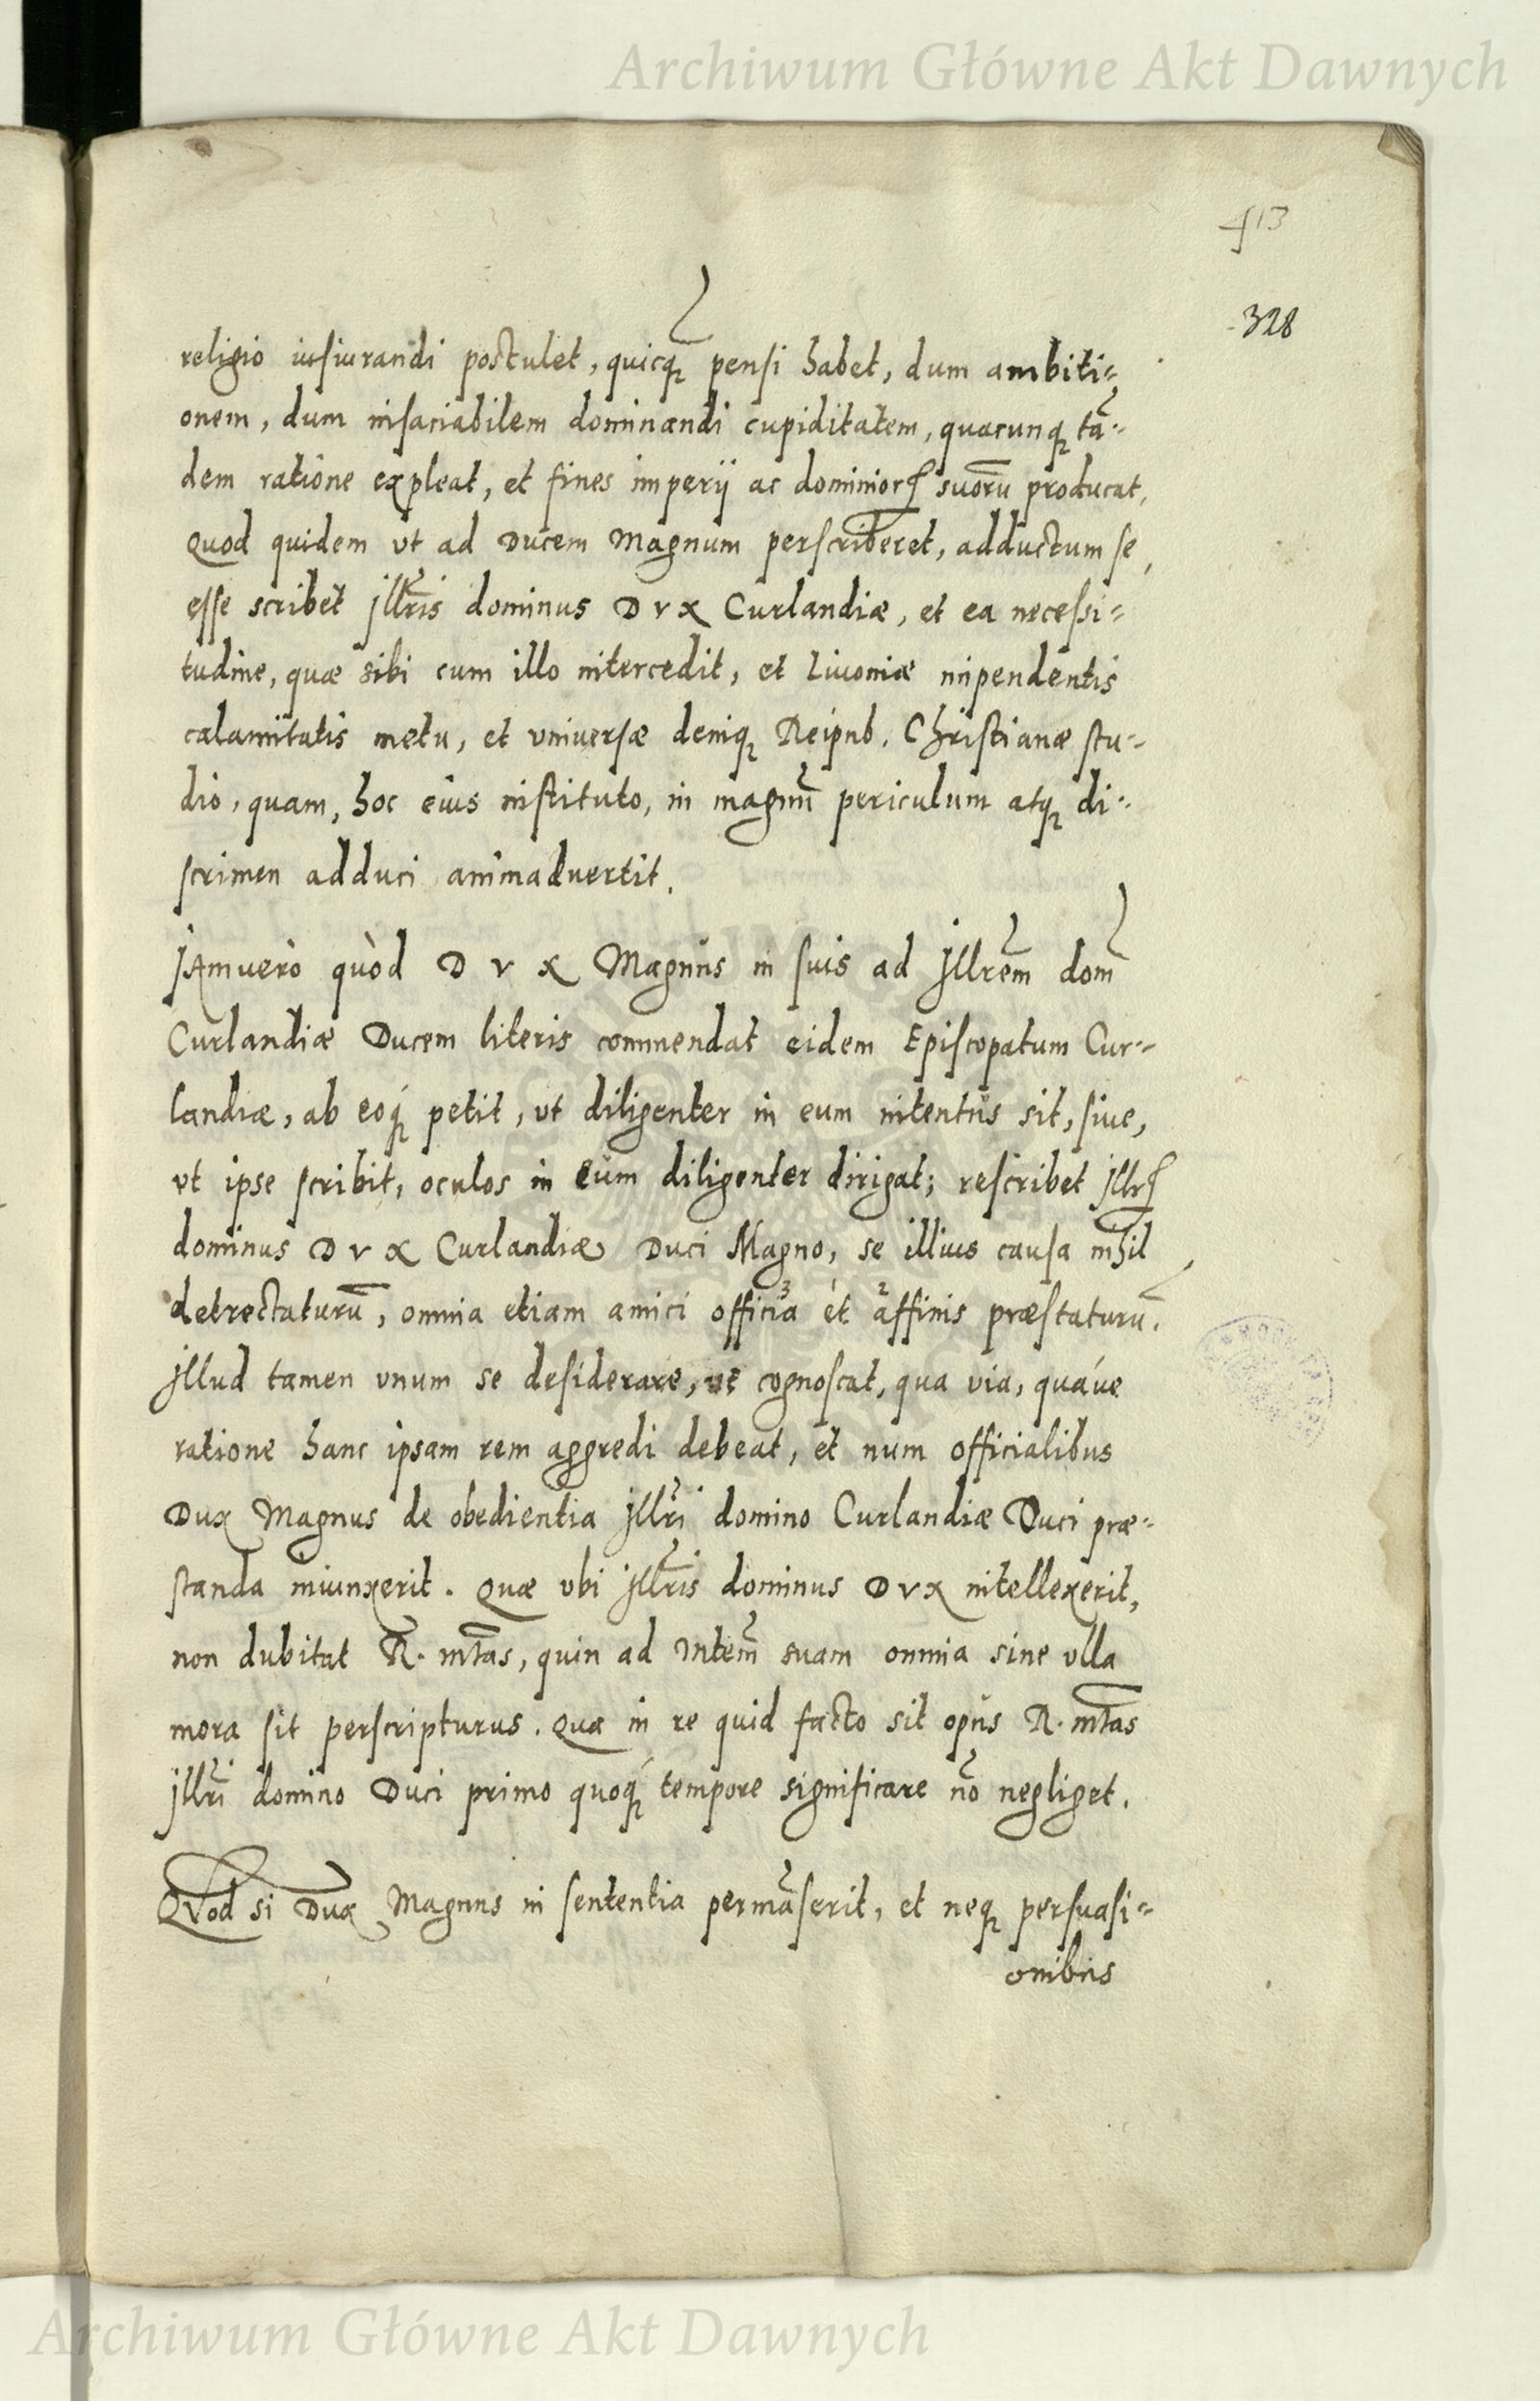 Archiwum Główne Akt Dawnych
413
328
religio iusiurandi postulet, quicq̃ pensi habet, dum ambiti=
onem, dum insaciabilem dominandi cupiditatem, quacunq; tã=
dem ratione expleat, et fines imperij ac dominiorꝝ suorũ producat,
Quod quidem vt ad Ducem Magnum perscriberet, adductum se,
esse scribet Jllr̃is dominus DVX Curlandiæ, et ea necessi=
tudine, quæ sibi cum illo intercedit, et Liuoniæ inpendentis
calamitatis metu, et vniuersæ deniq; Reipub. Christianæ stu=
dio, quam, hoc eius instituto, in magnũ periculum atq; di=
scrimen adduci animaduertit.
JAmuerò quòd DVX Magnus in suis ad Jllrẽm dom̃
Curlandiæ Ducem literis commendat eidem Episcopatum Cur=
landiæ, ab eoq́; petit, vt diligenter in eum intentus sit, siue,
vt ipse scribit, oculos in eum diligenter dirigat; rescribet Jllrꝭ
dominus DVX Curlandiæ Duci Magno, se illius causa nihil
detrectaturũ, omnia etiam amici officia et affinis præstaturũ.
Jllud tamen vnum se desiderare, vt cognoscat, qua via, quáue
ratione hanc ipsam rem aggredi debeat, et num officialibus
Dux Magnus de obedientia Jllr̃i domino Curlandiæ Duci præ=
standa iniunxerit. Quæ vbi Jllr̃is dominus DVX intellexerit,
non dubitat R. Mt̃as, quin ad Mtem̃ suam omnia sine vlla
mora sit perscripturus. Qua in re quid facto sit opus R. Mt̃as
Jllr̃i domino Duci primo quoq́; tempore significare nõ negliget.
QVod si Dux Magnus in sententia permãserit, et neq; persuasi=
onibus
Archiwum Główne Akt Dawnych